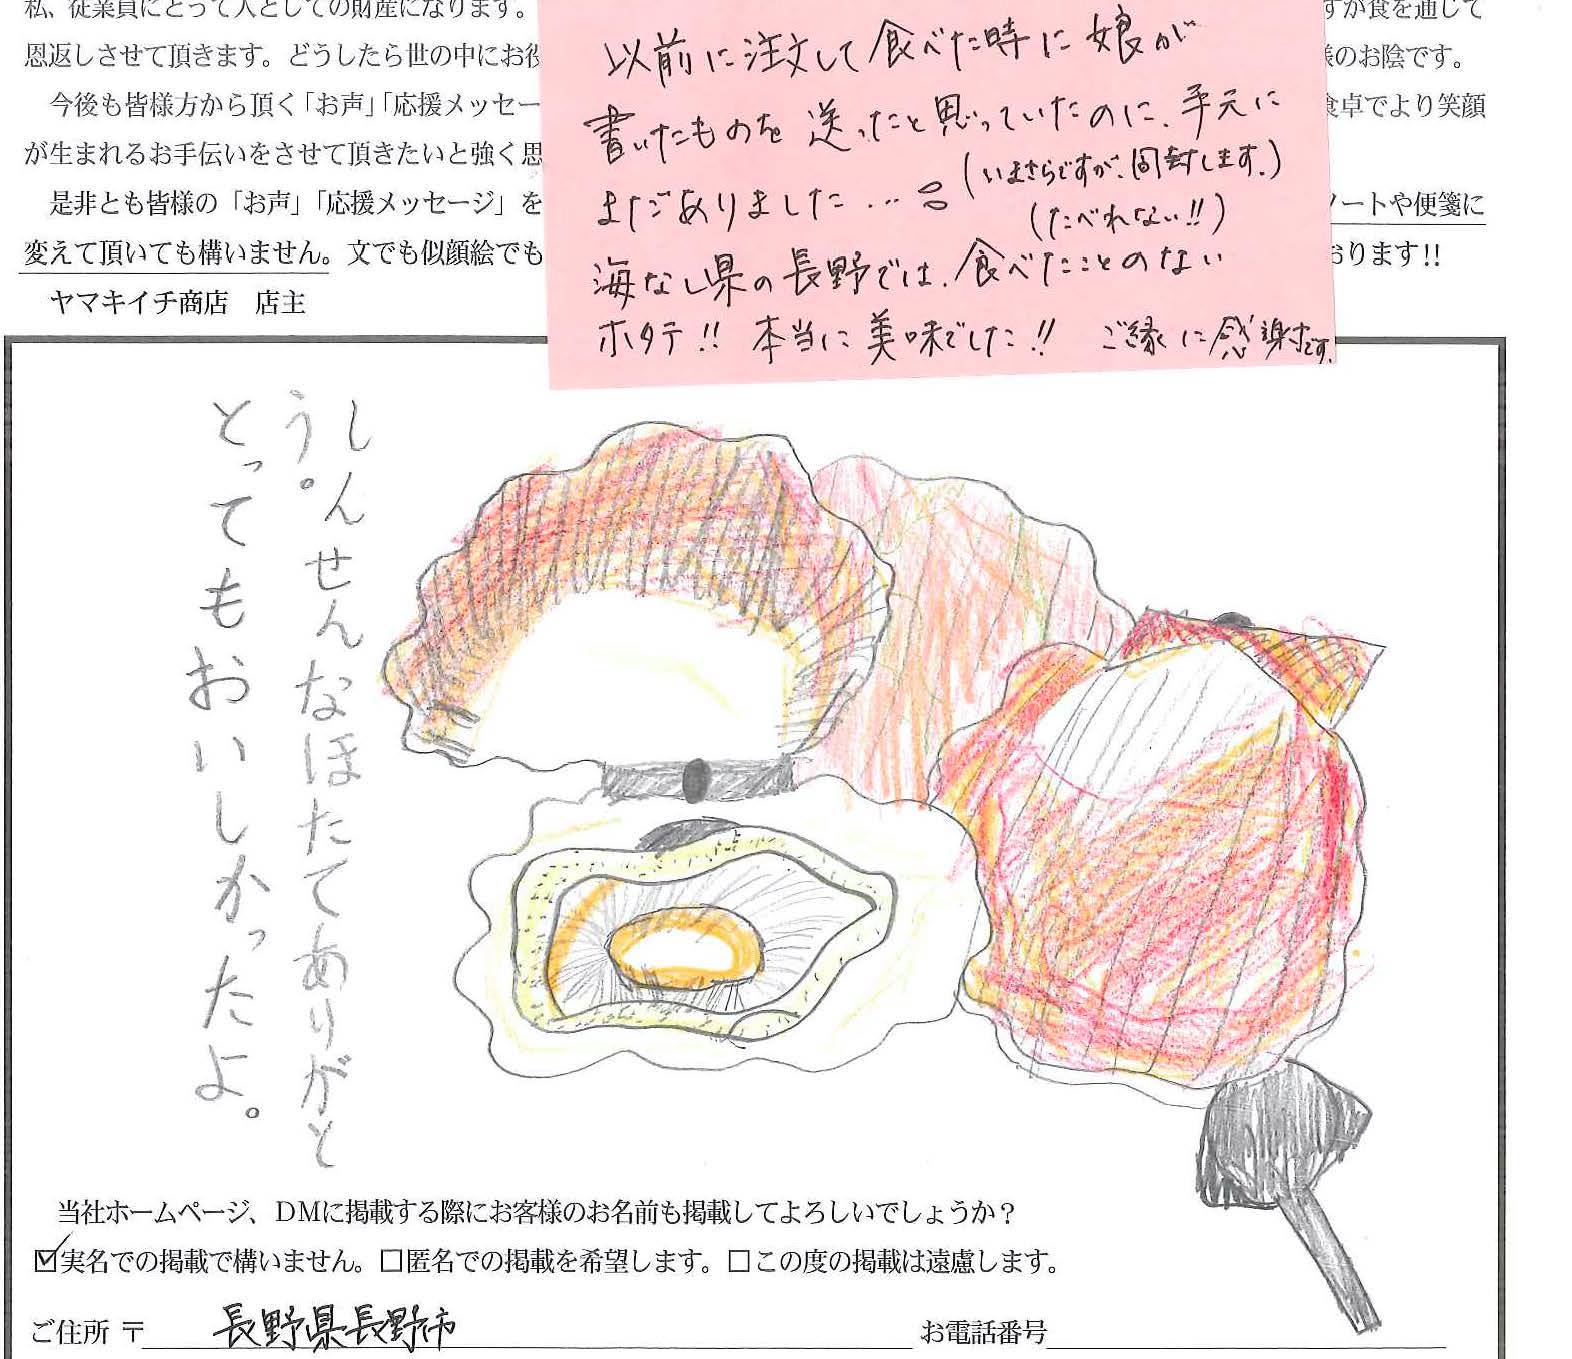 私、従業員にとって人としての財産になります。
すが食を通じて
恩返しさせて頂きます。どうしたら世の中にお役
様のお陰です。
今後も皆様方から頂く「お声」「応援メッセー
食卓でより笑顔
が生まれるお手伝いをさせて頂きたいと強く思
是非とも皆様の「お声」「応援メッセージ」を
ノートや便箋に
変えて頂いても構いません。文でも似顔絵でも
おります!!
ヤマキイチ商店 店主
以前に注文して食べた時に娘が
書いたものを送ったと思っていたのに、手元に
まだありました…。
(いまさらですが、同封します。)
(たべれない!!)
海なし県の長野では、食べたことのない
ホタテ!! 本当に美味でした!! ご縁に感謝です。
しんせんなほたてありがと
う。
とってもおいしかったよ。
当社ホームページ、DMに掲載する際にお客様のお名前も掲載してよろしいでしょうか?
☑実名での掲載で構いません。□匿名での掲載を希望します。□この度の掲載は遠慮します。
ご住所 〒 長野県長野市 お電話番号